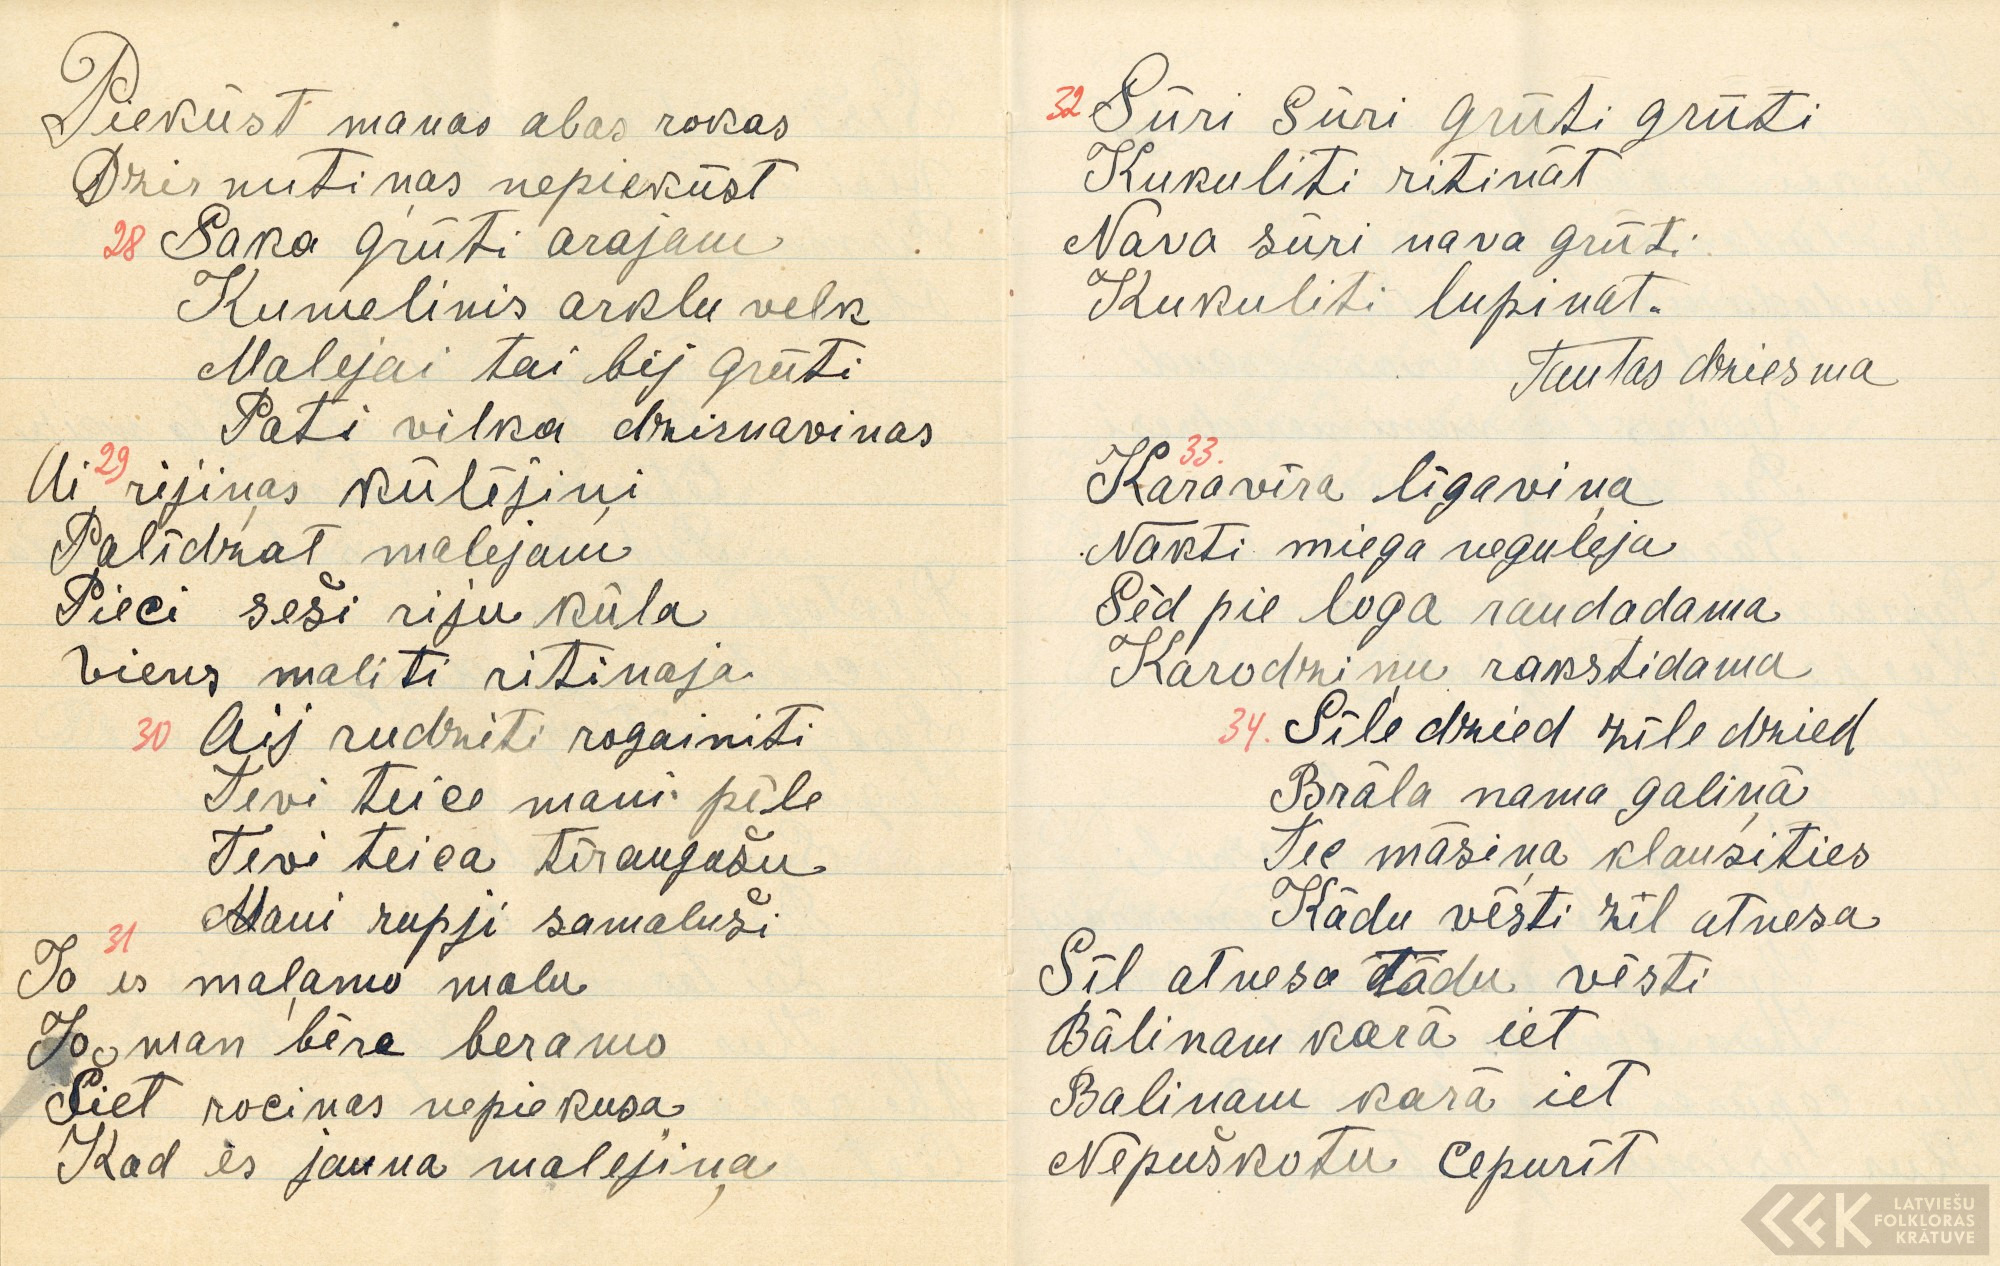 Piekūst manas abas rokas
Dzirnutiņas nepiekūst
28 Saka grūti arajam
Kumelinis arklu velk
Malejai tai bij grūti
Pati vilka dzirnavinas
29
Ai rijiņas kūlējiņi
Palīdzat malejam
Pieci seši riju kūla
Viens maliti ritinaja
30 Aij rudziti rogainiti
Tevi teice mani pēle
Tevi teica tīraugušu
Mani rupji samaluši
31
Jo es maļamo malu
Jo man bēra beramo
Siet rocinas nepiekusa
Kad es jauna malejiņa
32 Sūri sūri grūti grūti
Kukuliti ritināt
Nava sūri nava grūti
Kukuliti lupinat.
Tautas dziesma
33.
Karavīra līgaviņa
Nakti miega neguleja
Sēd pie loga raudadama
Karodziņu rakstidama
34. Sīle dzied zīle dzied
Brāla nama galiņā
Tec māsiņa klausities
Kādu vēsti zīl atnesa
Sīl atnesa tādu vēsti
Bālinam karā iet
Balinam karā iet
Nēpuškotu cepurīt
LATVIEŠU
FOLKLORAS
KRĀTUVE